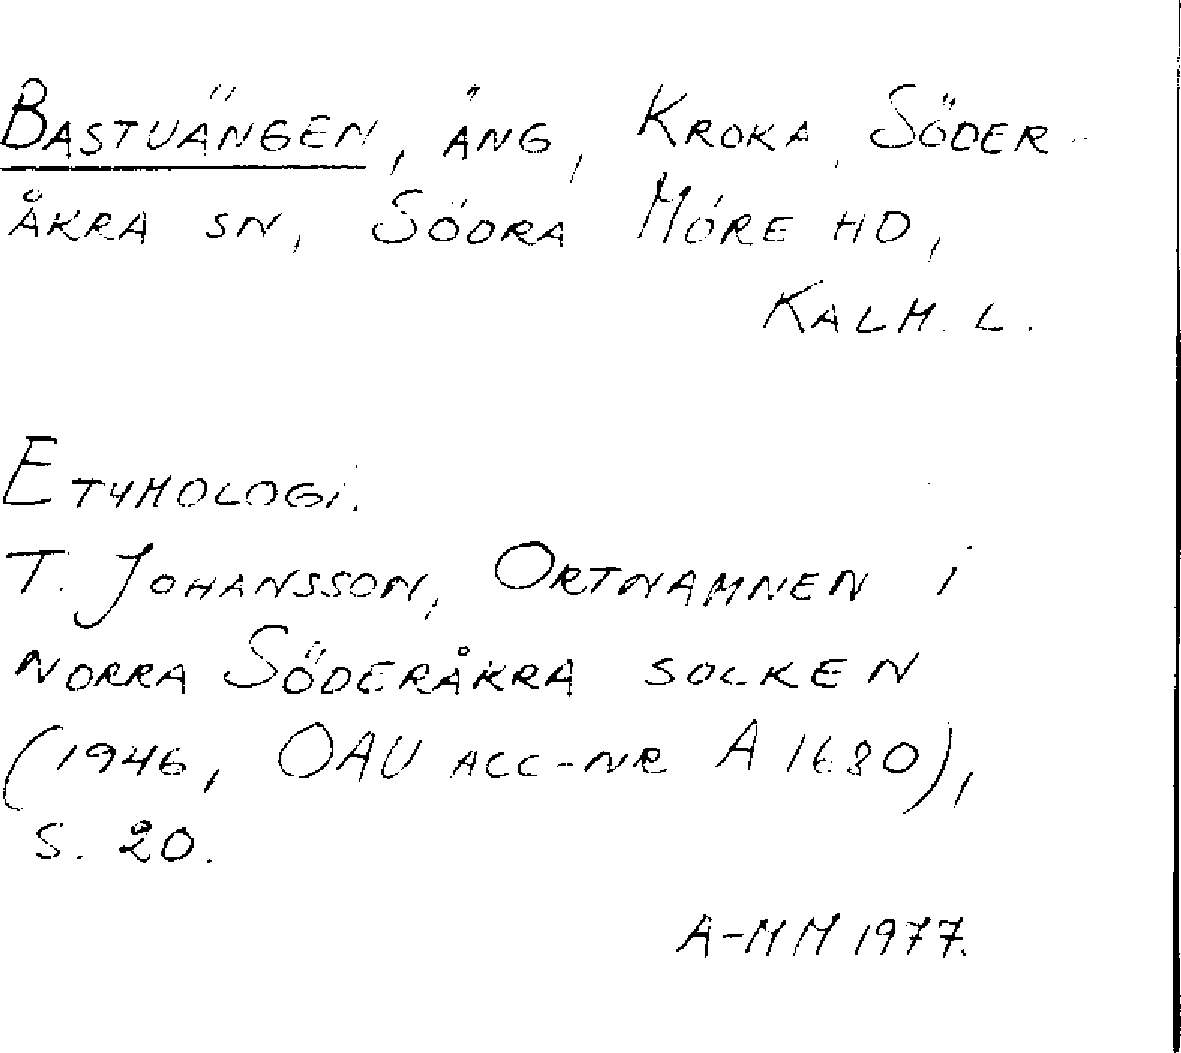 BASTUÄNGEN, ÄNG, KROKA, SÖDER-
ÅKRA SN, SÖDRA MÖRE HD,
KALM. L.
ETYMOLOGI.
T. JOHANSSON, ORTNAMNEN I
NORRA SÖDERÅKRA SOCKEN
(1946, OAU ACC-NR A 1680),
S. 20.
A-MM 1977.